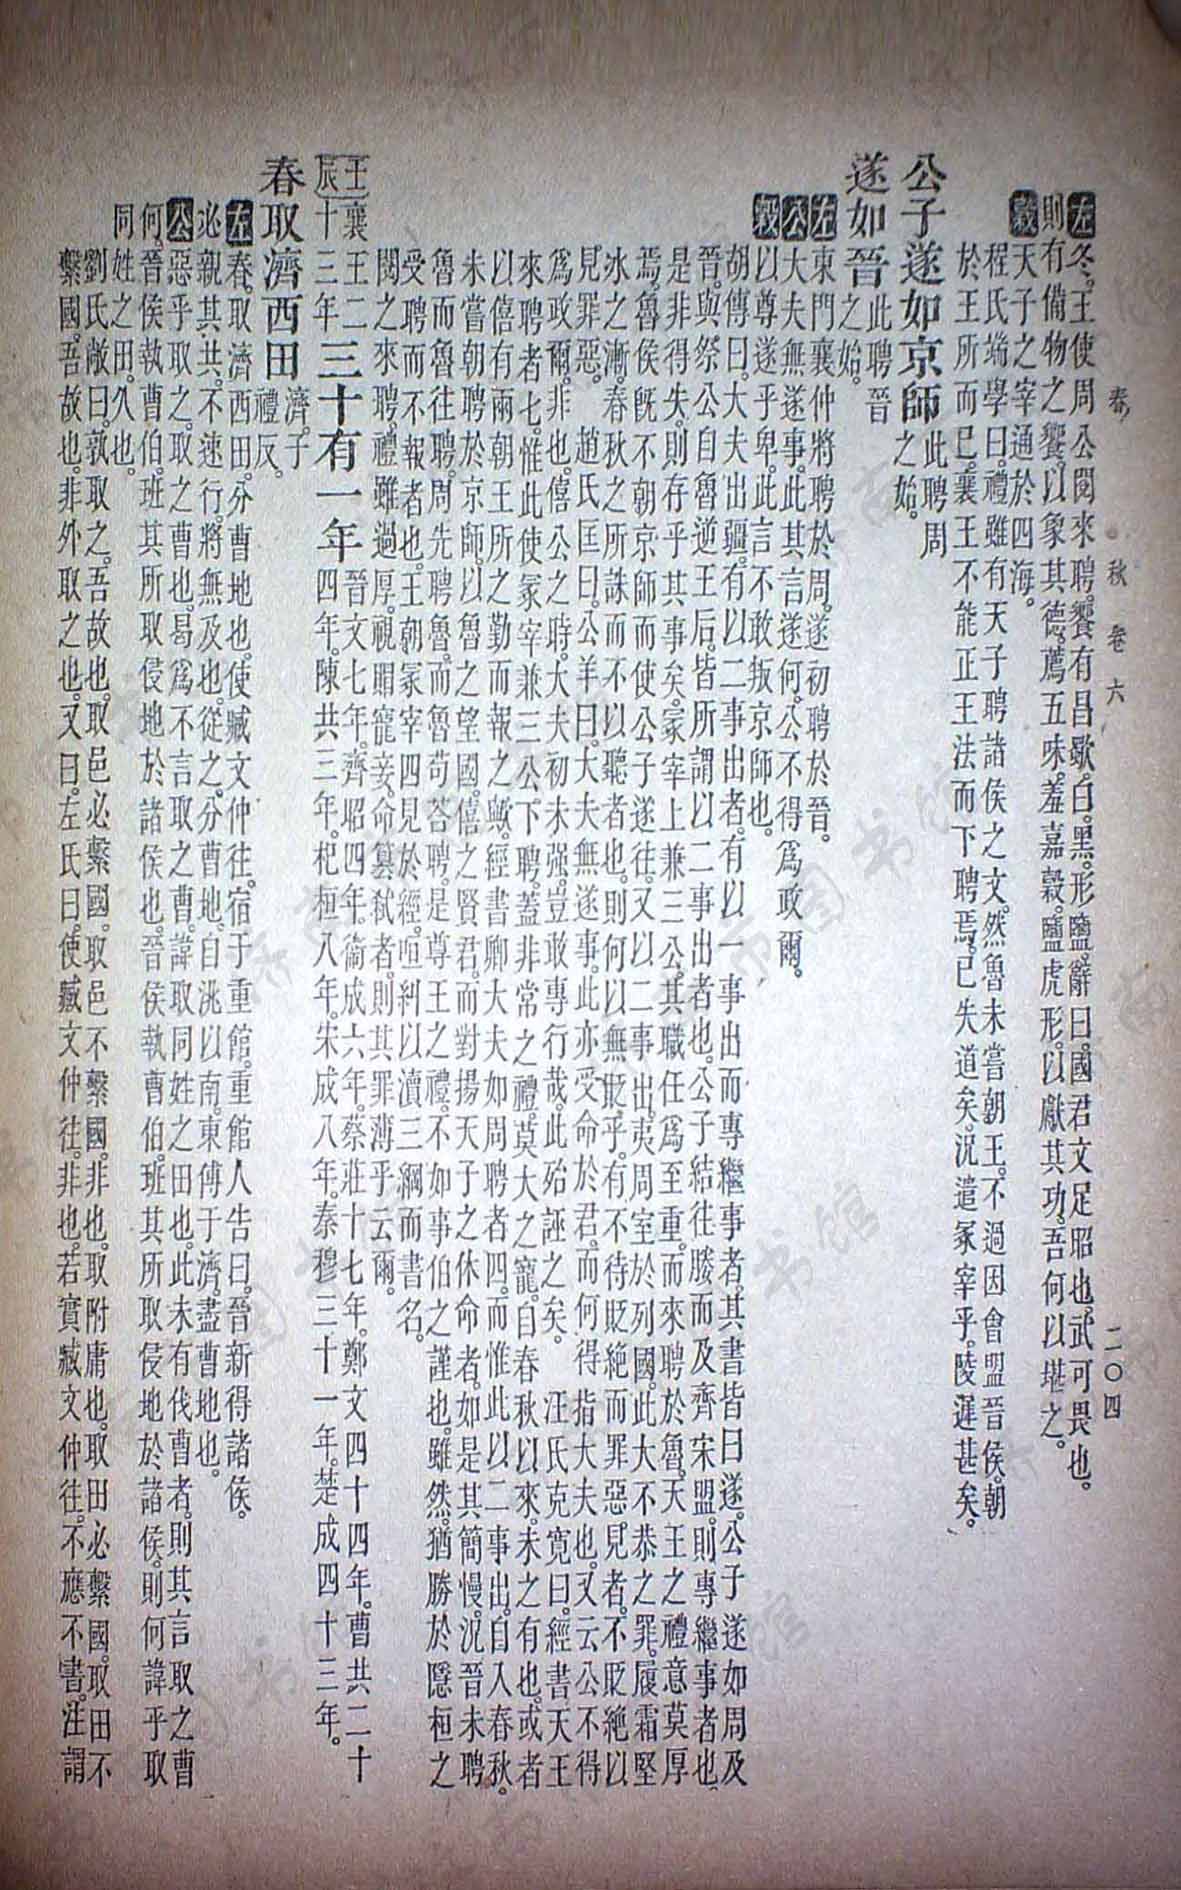 春秋 卷六 二〇四
左冬。王使周公閱來聘。饗有昌歜。白。黑。形鹽。辭曰。國君文足昭也。武可畏也。
則有備物之饗。以象其德。薦五味。羞嘉穀。鹽虎形。以獻其功。吾何以堪之。
穀天子之宰。通於四海。
程氏端學曰。禮雖有天子聘諸侯之文。然魯未嘗朝王。不過因會盟晉侯。朝
於王所而已。襄王不能正王法而下聘焉。已失道矣。況遣冢宰乎。陵遲甚矣。
公子遂如京師此聘周之始。
遂如晉此聘晉之始。
左東門襄仲將聘於周。遂初聘於晉。
公大夫無遂事。此其言遂何。公不得爲政爾。
穀以尊遂乎卑。此言不敢叛京師也。
胡傳曰。大夫出疆。有以二事出者。有以一事出而專繼事者。其書皆曰遂。公子遂如周及
晉。與祭公自魯逆王后。皆所謂以二事出者也。公子結往媵而及齊宋盟。則專繼事者也
是非得失。則存乎其事矣。冢宰上兼三公。其職任爲至重。而來聘於魯。天王之禮意莫厚
焉。魯侯旣不朝京師。而使公子遂往。又以二事出。夷周室於列國。此大不恭之罪。履霜堅
冰之漸。春秋之所誅而不以聽者也。則何以無貶乎。有不待貶絕而罪惡見者。不貶絕以
見罪惡。 趙氏匡曰。公羊曰。大夫無遂事。此亦受命於君。而何得指大夫也。又云公不得
爲政爾。非也。僖公之時。大夫初未强。豈敢專行哉。此殆誣之矣。 汪氏克寬曰。經書天王
來聘者七。惟此使冢宰兼三公下聘。蓋非常之禮。莫大之寵。自春秋以來。未之有也。或者
以僖有兩朝王所之勤而報之歟。經書卿大夫如周聘者四。而惟此以二事出。自入春秋。
未嘗朝聘於京師。以魯之望國。僖之賢君。而對揚天子之休命者。如是其簡慢。況晉未聘
魯而魯往聘。周先聘魯。而魯苟荅聘。是尊王之禮。不如事伯之謹也。雖然。猶勝於隱桓之
受聘而不報者也。王朝冢宰四見於經。咺糾以瀆三綱而書名。
閱之來聘。禮雖過厚。視賵寵妾。命簒弑者。則其罪薄乎云爾。
壬辰襄王二十三年三十有一年晉文七年。齊昭四年。衞成六年。蔡莊十七年。鄭文四十四年。曹共二十
四年。陳共三年。杞桓八年。宋成八年。秦穆三十一年。楚成四十三年。
春取濟西田濟。子禮反。
左春。取濟西田。分曹地也。使臧文仲往。宿于重館。重館人告曰。晉新得諸侯。
必親其共。不速行。將無及也。從之。分曹地。自洮以南。東傅于濟。盡曹地也。
公惡乎取之。取之曹也。曷爲不言取之曹。諱取同姓之田也。此未有伐曹者。則其言取之曹
何。晉侯執曹伯。班其所取侵地於諸侯也。晉侯執曹伯。班其所取侵地於諸侯。則何諱乎取
同姓之田。久也。
劉氏敞曰。孰取之。吾故也。取邑必繫國。取邑不繫國。非也。取附庸也。取田必繫國。取田不
繫國。吾故也。非外取之也。又曰。左氏曰。使臧文仲往。非也。若實臧文仲往。不應不書。注謂